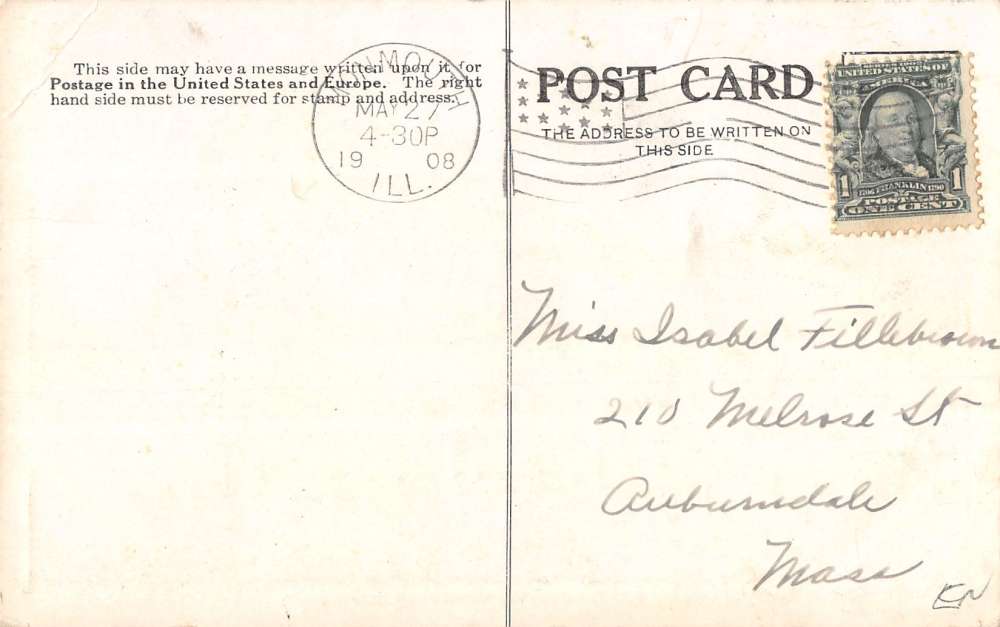 This side may have a message written upon it for
Postage in the United States and Europe. The right
hand side must be reserved for stamp and address.
MONMOUTH
MAY 27
4-30P
19 08
ILL.
POST CARD
THE ADDRESS TO BE WRITTEN ON
THIS SIDE
UNITED STATES OF
AMERICA
1 1706 FRANKLIN 1790 1
POSTAGE
ONE CENT
Miss Isabel Fillebrown
210 Melrose St
Auburndale
Mass